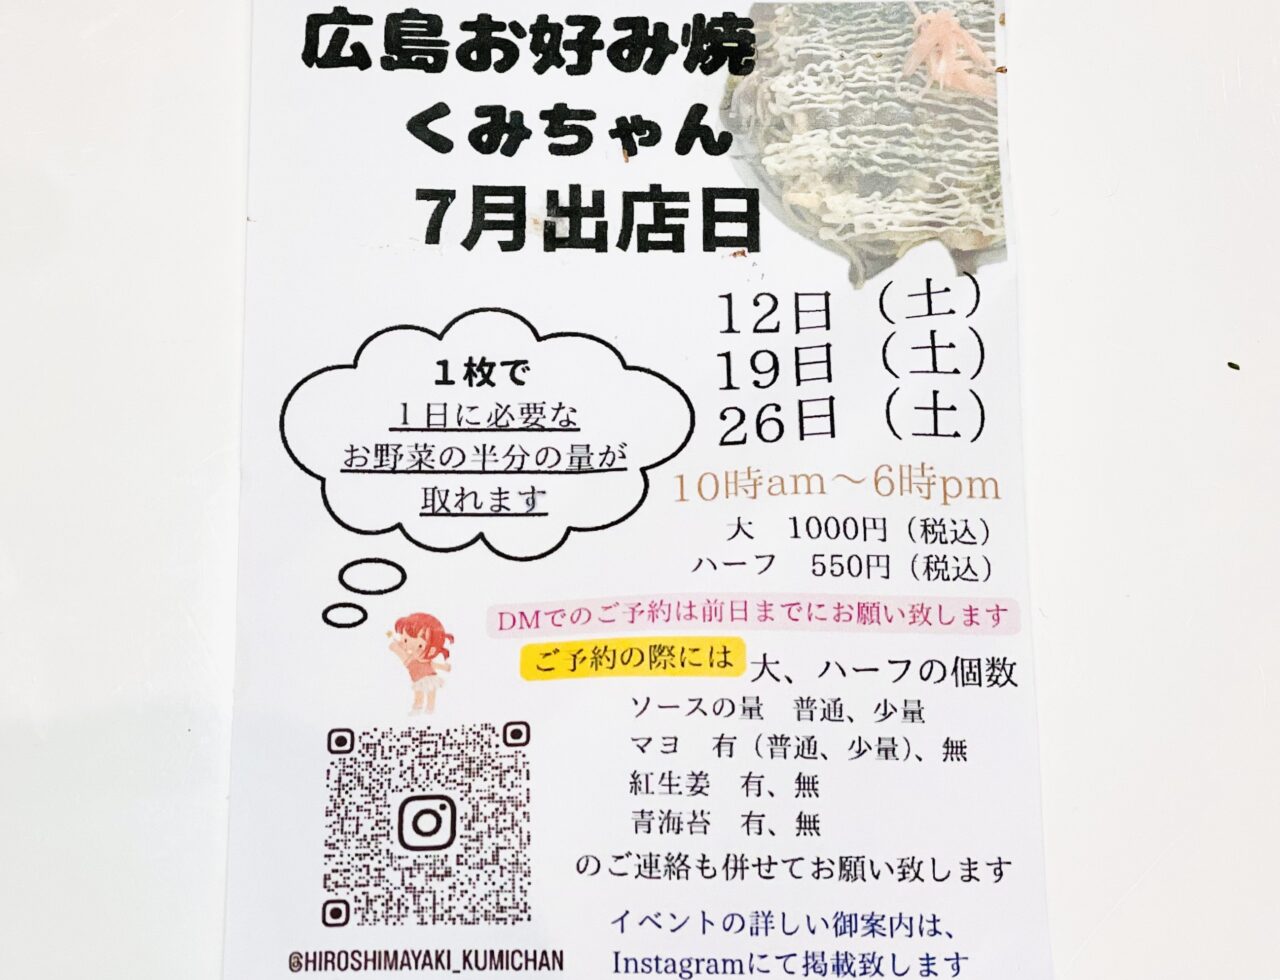 広島お好み焼
くみちゃん
7月出店日
12日（土）
19日（土）
26日（土）
10時am〜6時pm
大　1000円（税込）
ハーフ　550円（税込）
１枚で
１日に必要な
お野菜の半分の量が
取れます
DMでのご予約は前日までにお願い致します
ご予約の際には 大、ハーフの個数
ソースの量　普通、少量
マヨ　有（普通、少量）、無
紅生姜　有、無
青海苔　有、無
のご連絡も併せてお願い致します
イベントの詳しい御案内は、
Instagramにて掲載致します
@HIROSHIMAYAKI_KUMICHAN